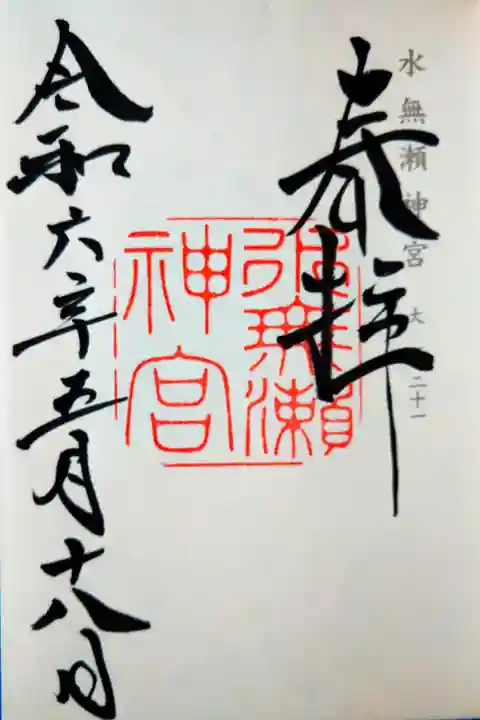 水無瀬神宮
大
二十一
奉拝
水無瀬
神宮
令和六年五月十八日